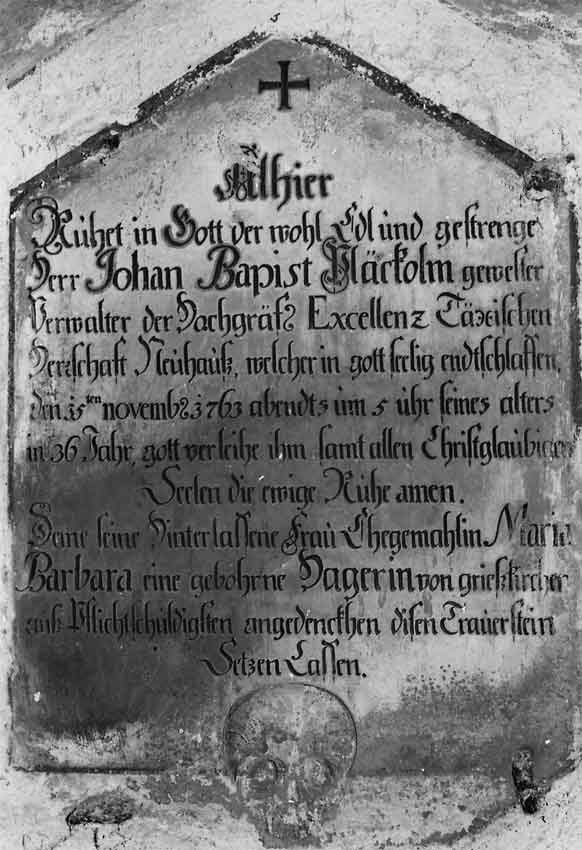 Alhier
Rühet in Gott der wohl Edl und gestrenge
Herr Johan Bapist Pläckolm gewester
Verwalter der Hachgräfs Excellenz Täxeischen
Herrschaft Neuhauß, welcher in gott seelig endtschlaffen,
den 15ten novemb 1763 abendts um 5 uhr seines alters
in 36 Jahr, gott verleihe ihm samt allen Christglaubigen
Seelen die ewige Rühe amen.
Deme seine Hinterlassene Fraü Ehegemahlin Maria
Barbara eine gebohrne Hagerin von grießkircher
auß Pflichtschüldigsten angedenckhen disen Trauerstein
Setzen Lassen.